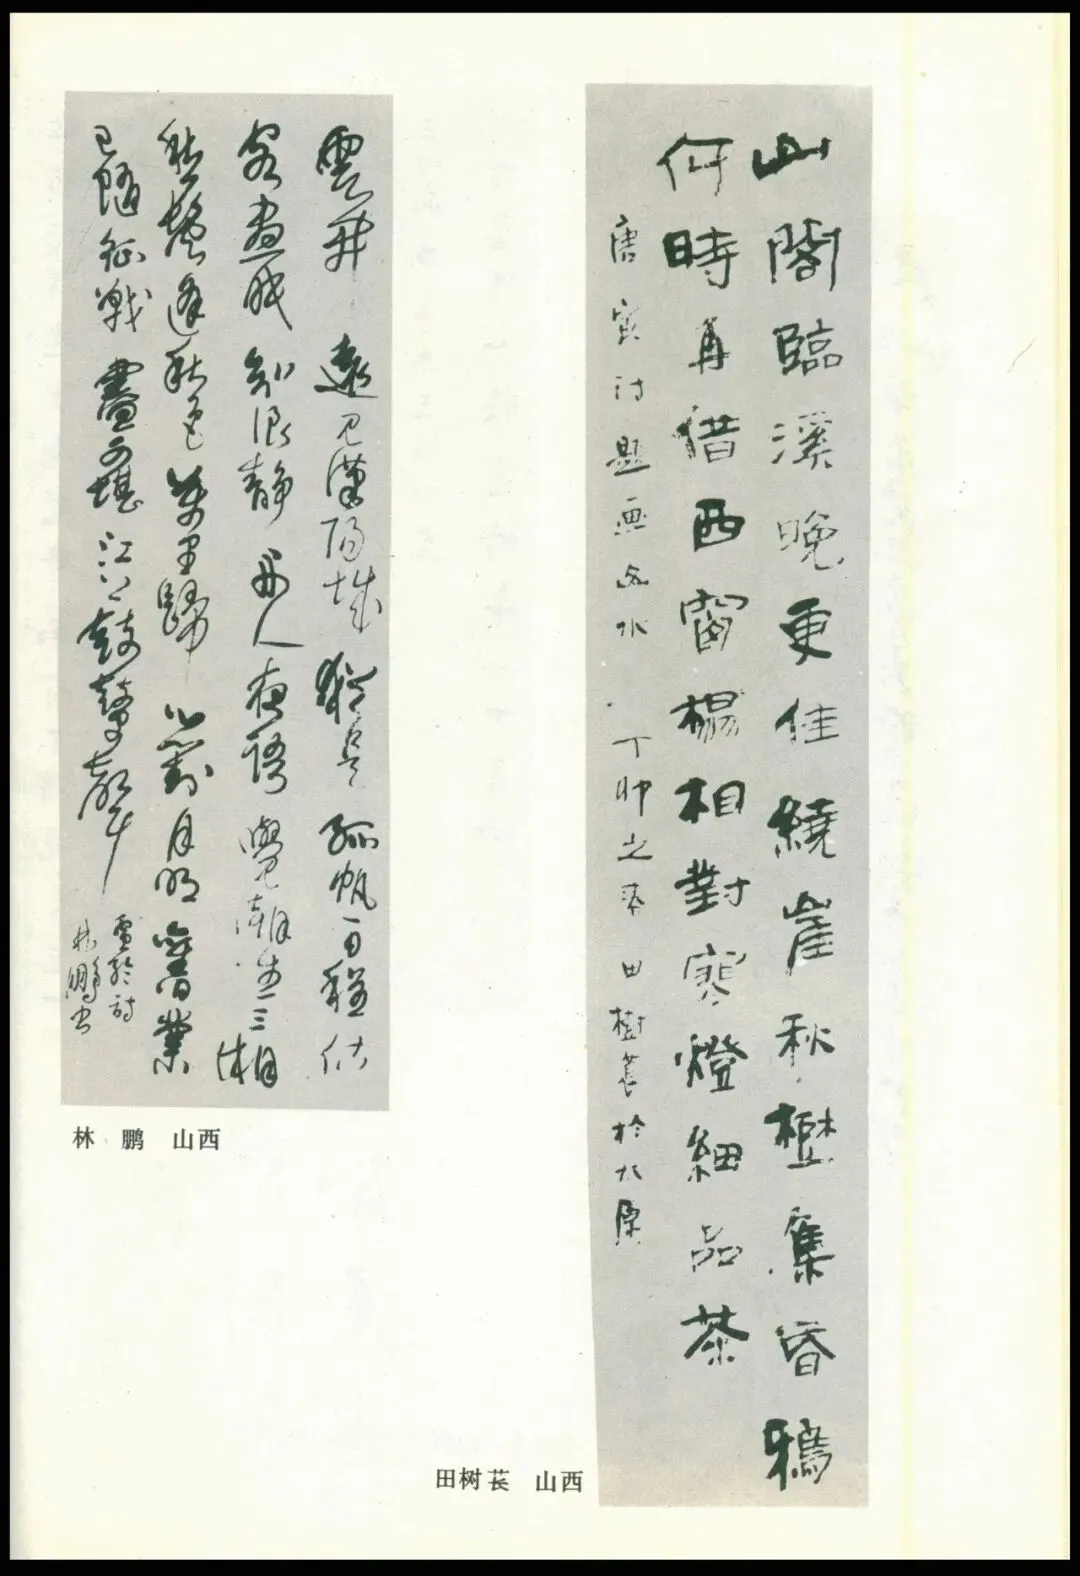 山閣臨溪晚更佳繞崖秋樹集昏鴉
何時再借西窗榻相對寒燈細品茶
唐寅詩題画山水 丁卯之春 田樹萇於太原
田树苌 山西
雲開遠見漢陽城猶是孤帆一日程估
客晝眠知浪靜舟人夜語覺潮生三湘
愁鬢逢秋色萬里歸心對月明舊業
已隨征戰盡更堪江上鼓鼙聲
盧綸詩
林鵬书
林 鹏 山西